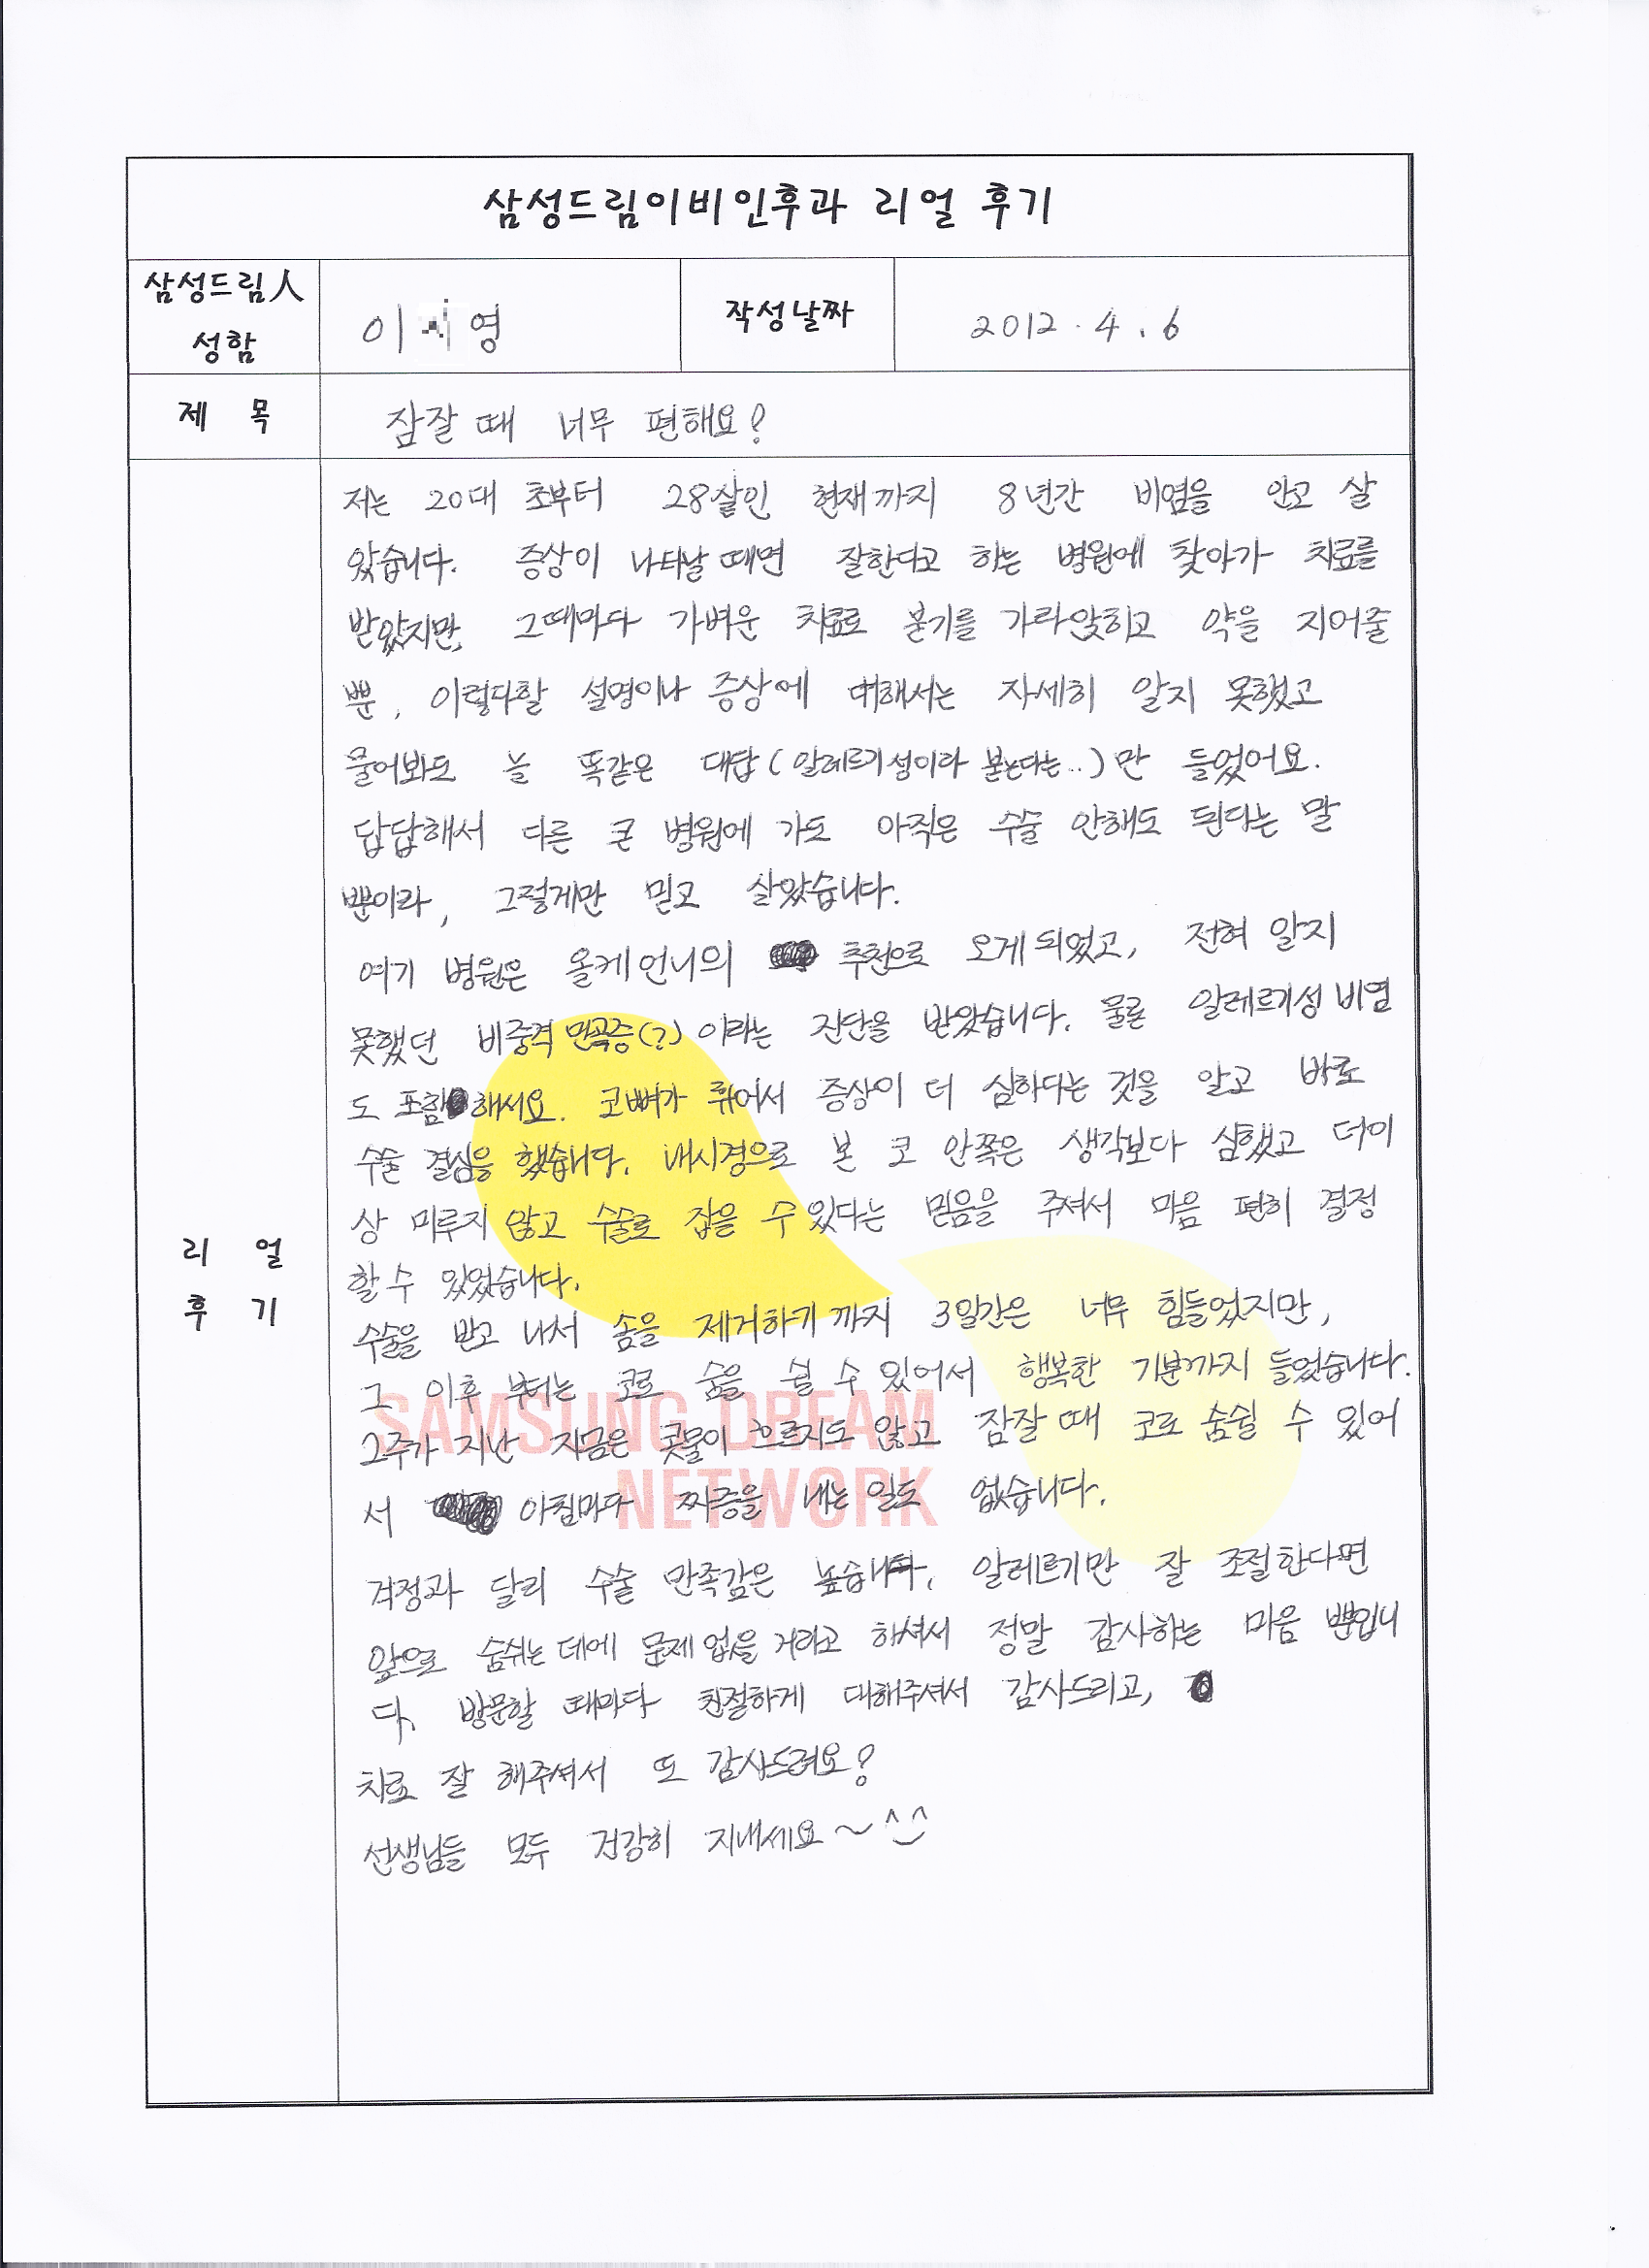 삼성드림이비인후과 리얼 후기
삼성드림人
성함
이 영
작성날짜
2012. 4. 6
제 목
잠잘 때 너무 편해요?
저는 20대 초부터 28살인 현재까지 8년간 비염을 안고 살
았습니다. 증상이 나타날 때면 잘한다고 하는 병원에 찾아가 치료를
받았지만, 그때마다 가벼운 치료로 붇기를 가라앉히고 약을 지어줄
뿐, 이렇다할 설명이나 증상에 대해서는 자세히 알지 못했고
물어봐도 늘 똑같은 대답(알레르기성이라 붇는다는..)만 들었어요.
답답해서 다른 큰 병원에 가도 아직은 수술 안해도 된다는 말
뿐이라, 그렇게만 믿고 살았습니다.
여기 병원은 올케언니의 추천으로 오게되었고, 전혀 알지
못했던 비중격만곡증(?)이라는 진단을 받았습니다. 물론 알레르기성 비염
도 포함해서요. 코뼈가 휘어서 증상이 더 심하다는 것을 알고 바로
수술 결심을 했습니다. 내시경으로 본 코 안쪽은 생각보다 심했고 더이
상 미루지 않고 수술로 잡을 수 있다는 믿음을 주셔서 마음 편히 결정
할 수 있었습니다.
수술을 받고 나서 솜을 제거하기까지 3일간은 너무 힘들었지만,
그 이후 부터는 코로 숨을 쉴 수 있어서 행복한 기분까지 들었습니다.
2주가 지난 지금은 콧물이 흐르지도 않고 잠잘 때 코로 숨쉴 수 있어
서 아침마다 짜증을 내는 일도 없습니다.
걱정과 달리 수술 만족감은 높습니다. 알레르기만 잘 조절한다면
앞으로 숨쉬는 데에 문제 없을 거라고 하셔서 정말 감사하는 마음 뿐입니
다. 방문할 때마다 친절하게 대해주셔서 감사드리고,
치료 잘 해주셔서 또 감사드려요?
선생님들 모두 건강히 지내세요~ ^_^
리 얼
후 기
SAMSUNG DREAM
NETWORK